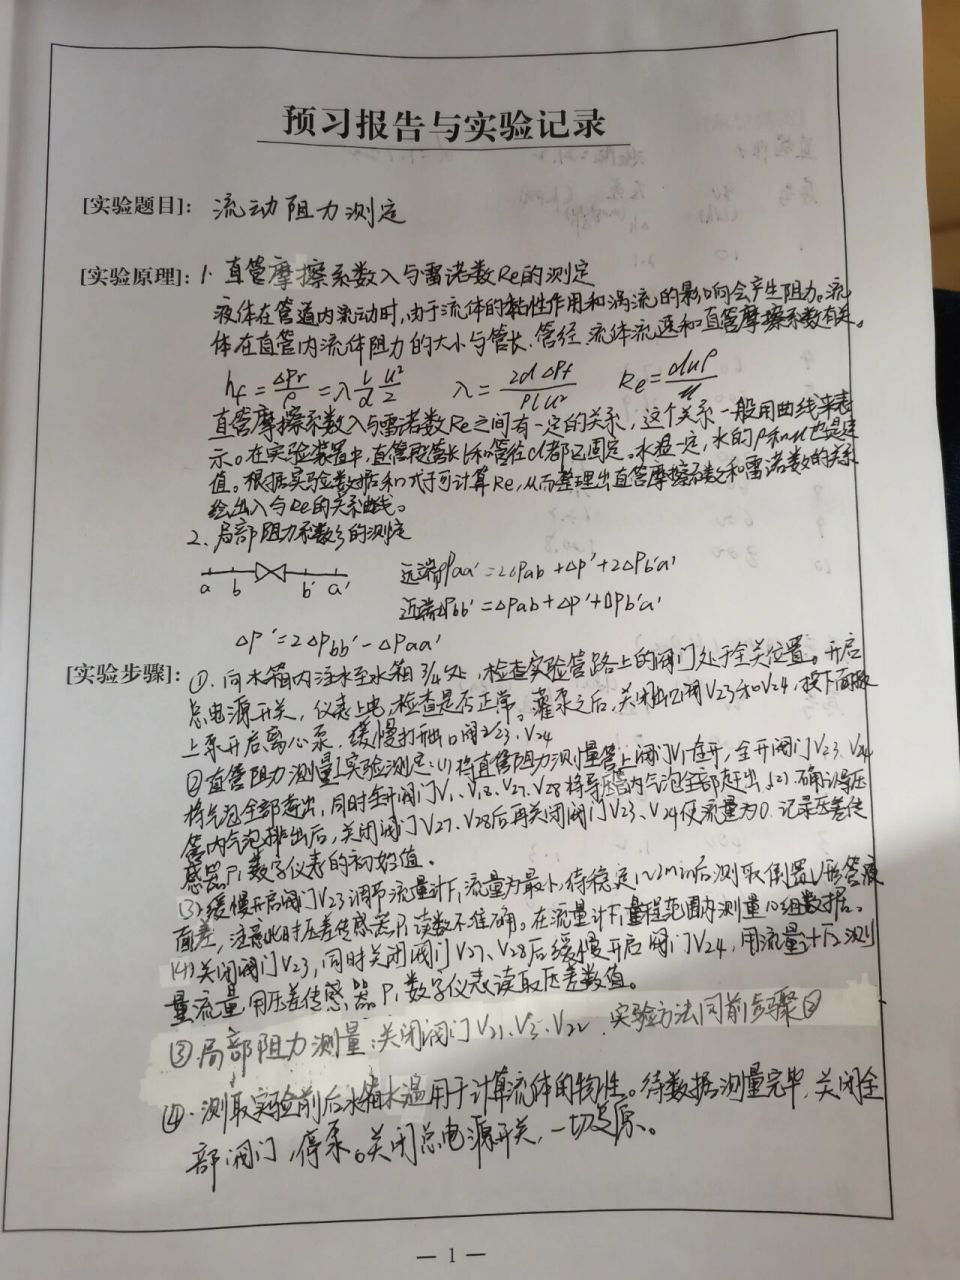 预习报告与实验记录
[实验题目]: 流动阻力测定
[实验原理]: 1. 直管摩擦系数λ与雷诺数Re的测定
液体在管道内流动时,由于流体的黏性作用和涡流的影响会产生阻力。流
体在直管内流体阻力的大小与管长、管径、流体流速和直管摩擦系数有关。
hf = ΔPf/ρ = λ l/d u²/2  λ = 2d ΔPf/ρl u²  Re = duρ/μ
直管摩擦系数λ与雷诺数Re之间有一定的关系,这个关系一般用曲线来表
示。在实验装置中,直管段管长l和管径d都已固定。水温一定,水的ρ和μ也是定
值。根据实验数据和式子可计算Re,从而整理出直管摩擦系数和雷诺数的关系
绘出λ与Re的关系曲线。
2、局部阻力系数ξ的测定
a b b' a'
远端ΔPaa' = 2ΔPab + ΔP' + 2ΔPb'a'
近端ΔPbb' = ΔPab + ΔP' + ΔPb'a'
ΔP' = 2ΔPbb' - ΔPaa'
[实验步骤]: ①. 向水箱内注水至水箱3/4处,检查实验管路上的阀门处于全关位置。开启
总电源开关,仪表上电,检查是否正常。灌泵之后,关闭出口阀V23和V24,按下面板
上泵开启离心泵,缓慢打开出口阀V23、V24
②直管阻力测量实验测定:(1)将直管阻力测量管上阀门V1全开,全开阀门V23、V24
将气泡全部赶出,同时全开阀门V1、V12、V27、V28将导压管内气泡全部赶出。(2).确认导压
管内气泡排出后,关闭阀门V27、V28后再关闭阀门V23、V24使流量为0.记录压差传
感器P1数字仪表的初始值。
(3)缓慢开启阀门V23调节流量计F1流量为最小,待稳定1~2min后测取倒置U形管液
面差,注意此时压差传感器P1读数不准确。在流量计F1量程范围内测量10组数据。
(4)关闭阀门V23,同时关闭阀门V27、V28后缓慢开启阀门V24,用流量计F2测
量流量,用压差传感器P1数字仪表读取压差数值。
③.局部阻力测量:关闭阀门V21、V3、V22.实验方法同前步骤②
④.测取实验前后水箱水温用于计算流体的物性。待数据测量完毕,关闭全
部阀门,停泵。关闭总电源开关,一切复原。
— 1 —